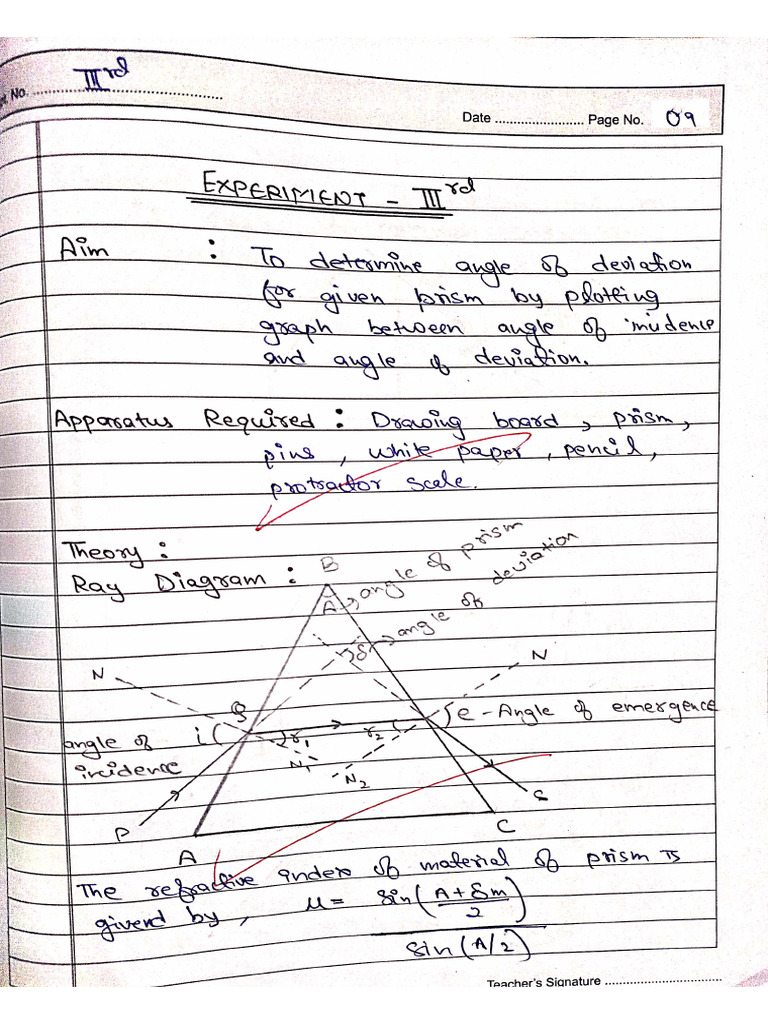 et No. IIIrd
Date ........................ Page No. 09
EXPERIMENT - IIIrd
Aim : To determine angle of deviation
for given prism by plotting
graph between angle of inudence
and angle of deviation.
Apparatus Required : Drawing board, prism,
pins, white paper, pencil,
protractor scale.
Theory :
Ray Diagram : B
A → angle of prism
δ → angle of deviation
N N
Q
i r1 r2 e - Angle of emergence
angle of
incidence
N1 N2
P S
A C
The refractive index of material of prism is
givend by, μ = sin(A + δm / 2)
sin(A/2)
Teacher's Signature ..............................